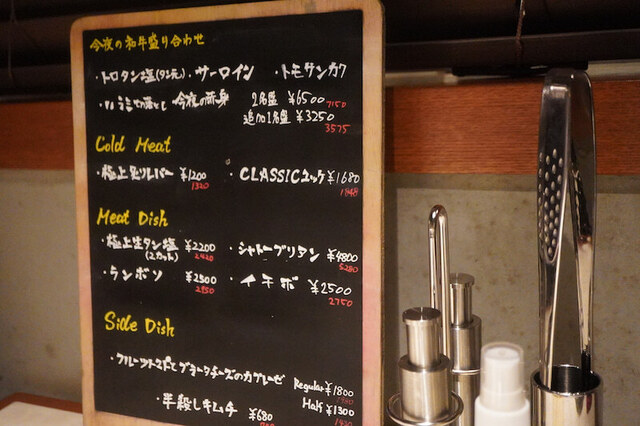 今夜の和牛盛り合わせ
・トロタン塩(タン元)・サーロイン ・トモサンカク
・ハラミ切落とし 今夜の赤身 2名盛 ¥6500 7150
追加1名盛 ¥3250
3575
Cold Meat
・極上炙りレバー ¥1200 ・CLASSICユッケ ¥1680
1320 1848
Meat Dish
・極上生タン塩 ¥2200 ・シャトーブリアン ¥4800
(2カット) 2420 5280
・ランボソ ¥2500 ・イチボ ¥2500
2750
Side Dish
・フルーツトマトとブラータチーズのカプレーゼ Regular ¥1800
Half ¥1300
1430
・半殺しキムチ ¥680